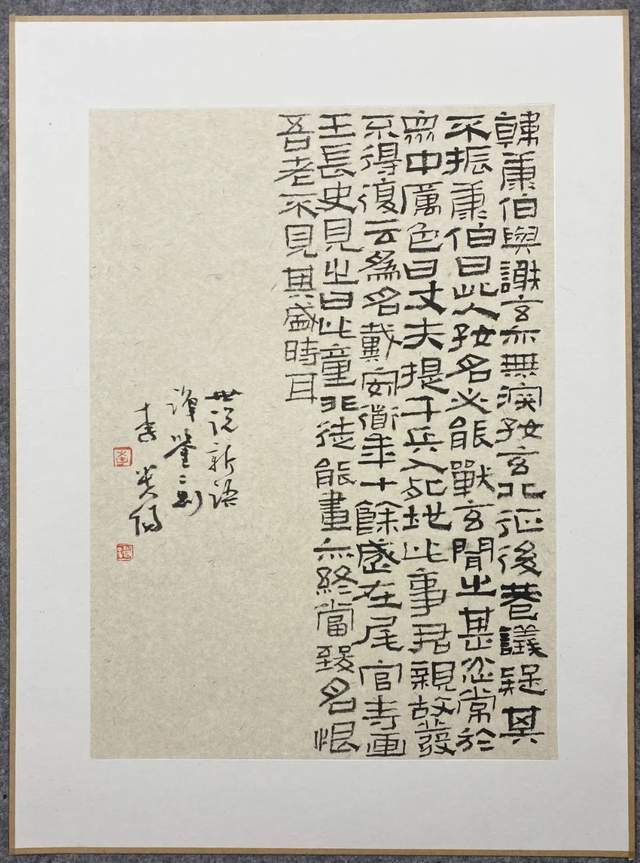 韓康伯與謝玄亦無深好玄北征後巷議疑其
不振康伯曰此人好名必能戰玄聞之甚忿常於
眾中厲色曰丈夫提千兵入死地以事君親故發
不得復云爲名戴安道年十餘歲在瓦官寺畫
王長史見之曰此童非徒能畫亦終當致名恨
吾老不見其盛時耳
世说新语
识鉴二则
李